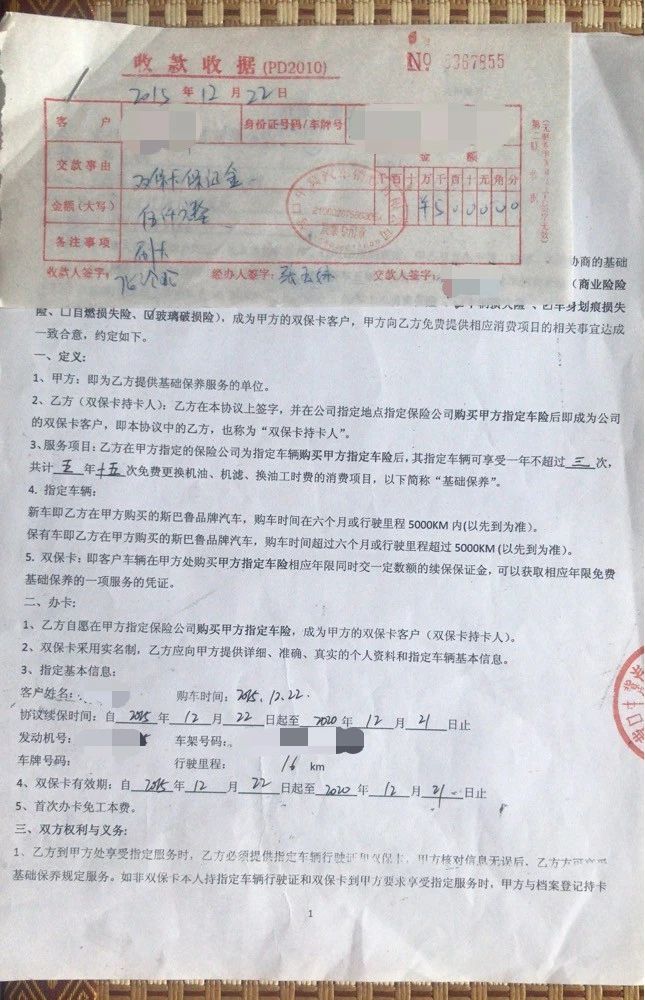 收款收据(PD2010)
2015年12月22日
客户
身份证号码/车牌号
交款事由
双保卡保证金
金额
千百十万千百十元角分
金额(大写)
伍仟元整
¥500000
备注事项
刷卡
收款人签字:
经办人签字:
交款人签字:
协商的基础
(商业险险
险、口自燃损失险、☑玻璃破损险),成为甲方的双保卡客户,甲方向乙方免费提供相应消费项目的相关事宜达成
一致合意,约定如下。
一、定义:
1、甲方:即为乙方提供基础保养服务的单位。
2、乙方(双保卡持卡人):乙方在本协议上签字,并在公司指定地点指定保险公司购买甲方指定车险后即成为公司
的双保卡客户,即本协议中的乙方,也称为“双保卡持卡人”。
3、服务项目:乙方在甲方指定的保险公司为指定车辆购买甲方指定车险后,其指定车辆可享受一年不超过 三 次,
共计 五 年 十五 次免费更换机油、机滤、换油工时费的消费项目,以下简称“基础保养”。
4. 指定车辆:
新车即乙方在甲方购买的斯巴鲁品牌汽车,购车时间在六个月或行驶里程 5000KM 内(以先到为准)。
保有车即乙方在甲方购买的斯巴鲁品牌汽车,购车时间超过六个月或行驶里程超过 5000KM (以先到为准)。
5. 双保卡:即客户车辆在甲方处购买甲方指定车险相应年限同时交一定数额的续保保证金,可以获取相应年限免费
基础保养的一项服务的凭证。
二、办卡:
1、乙方自愿在甲方指定保险公司购买甲方指定车险,成为甲方的双保卡客户(双保卡持卡人)。
2、双保卡采用实名制,乙方应向甲方提供详细、准确、真实的个人资料和指定车辆基本信息。
3、指定基本信息:
客户姓名: 购车时间: 2015.12.22.
协议续保时间:自 2015 年 12 月 22 日起至 2020 年 12 月 21 日止
发动机号: 车架号码:
车牌号码: 行驶里程: 16 km
4、双保卡有效期:自 2015 年 12 月 22 日起至 2020 年 12 月 21 日止
5、首次办卡免工本费。
三、双方权利与义务:
1、乙方到甲方处享受指定服务时,乙方必须提供指定车辆行驶证和双保卡,甲方核对信息无误后,乙方方可享受
基础保养规定服务。如非双保卡本人持指定车辆行驶证和双保卡到甲方要求享受指定服务时,甲方与档案登记持卡
1